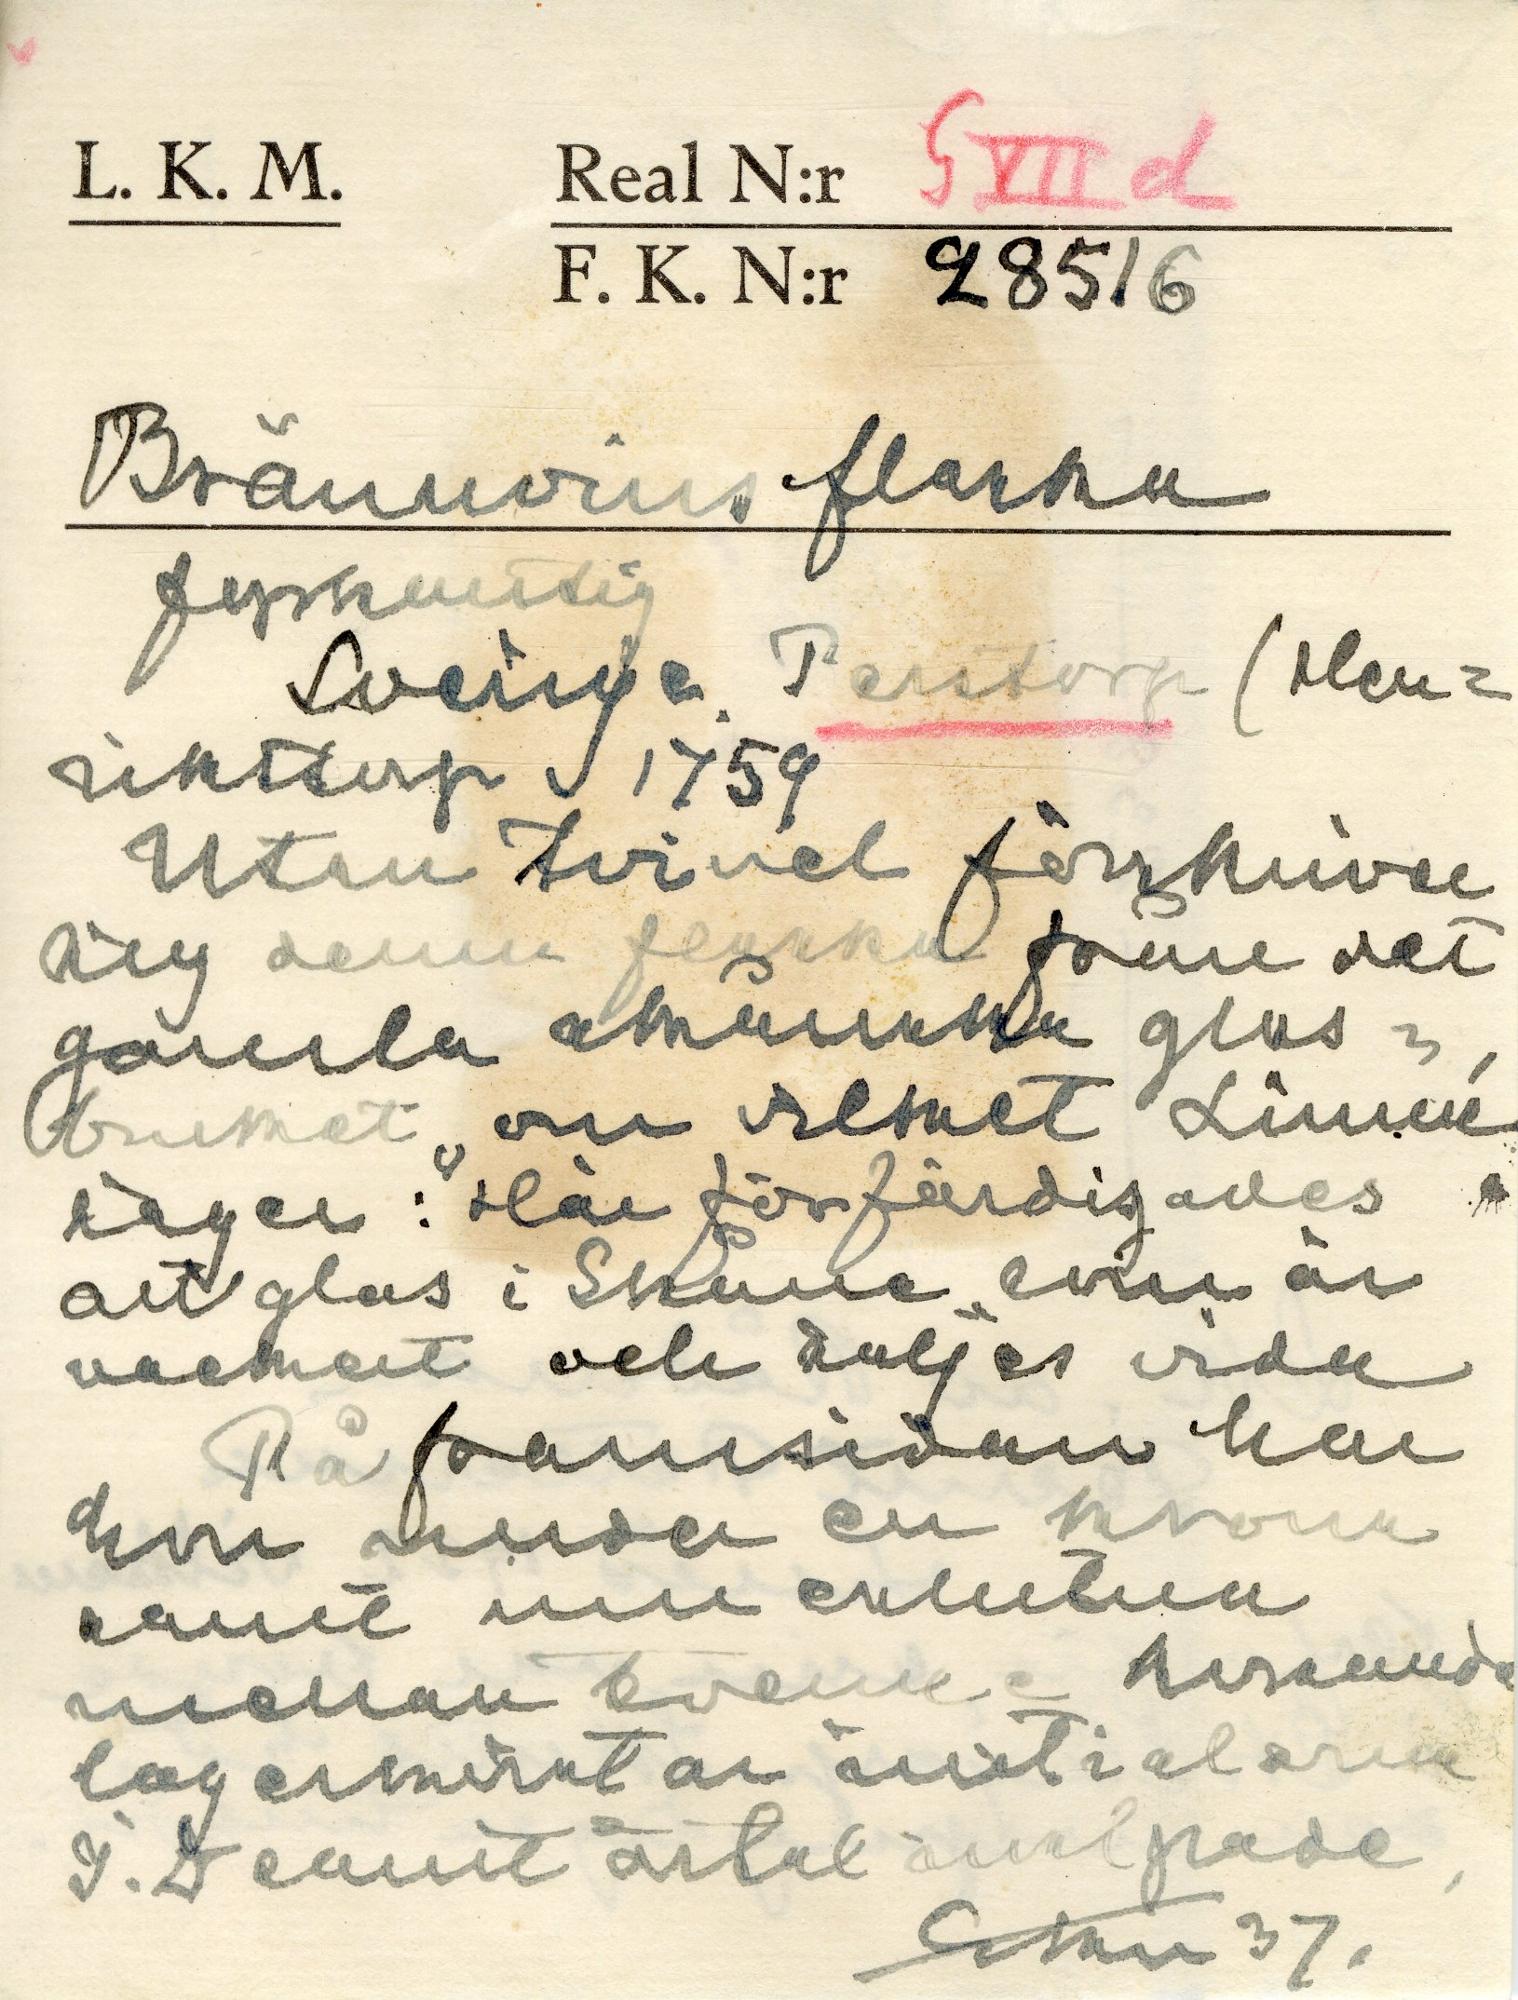 L. K. M. Real N:r G VII d
F. K. N:r 28516
Brännvinsflaska
fyrkantig
Sverige. Perstorp (Hen=
rikstorp, 1759
Utan tvivel förskriver
sig denna flaska från det
gamla skånska glas=
bruket, om vilket Linné
säger: "Här förfärdigades
allt glas i Skåne, som är
vackert och säljes vida
På framsidan har
hon under en krona
samt inneslutna
mellan tvenne korsande
lagerkvistar initialerna
I. D samt årtal inslipade,
37.